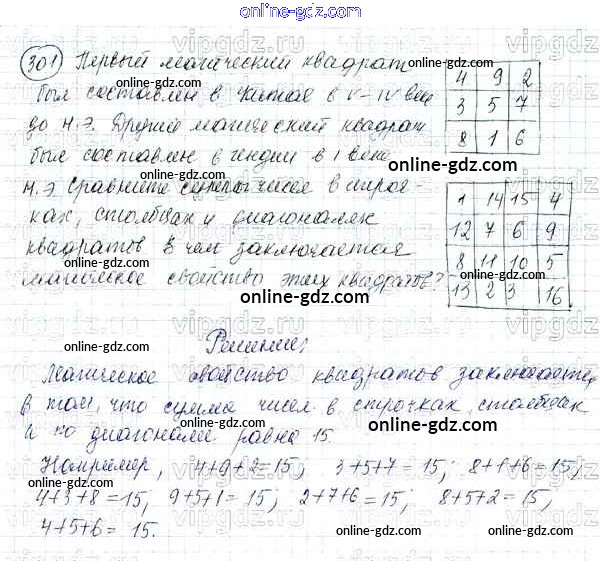 online-gdz.com
301) Первый магический квадрат
был составлен в Китае в V-IV веке
до н.э. Другой магический квадрат
был составлен в Индии в I веке
н.э. Сравните суммы чисел в строч-
ках, столбцах и диагоналях
квадратов. В чем заключается
магическое свойство этих квадратов?
4 9 2
3 5 7
8 1 6
online-gdz.com
1 14 15 4
12 7 6 9
8 11 10 5
13 2 3 16
online-gdz.com
online-gdz.com
Решение:
Магическое свойство квадратов заключается
в том, что сумма чисел в строчках, столбцах
и по диагонали равна 15.
Например, 4+9+2=15, 3+5+7=15; 8+1+6=15;
4+3+8=15; 9+5+1=15; 2+7+6=15; 8+5+2=15,
4+5+6= 15.
online-gdz.com
online-gdz.com
online-gdz.com
online-gdz.com
online-gdz.com
online-gdz.com